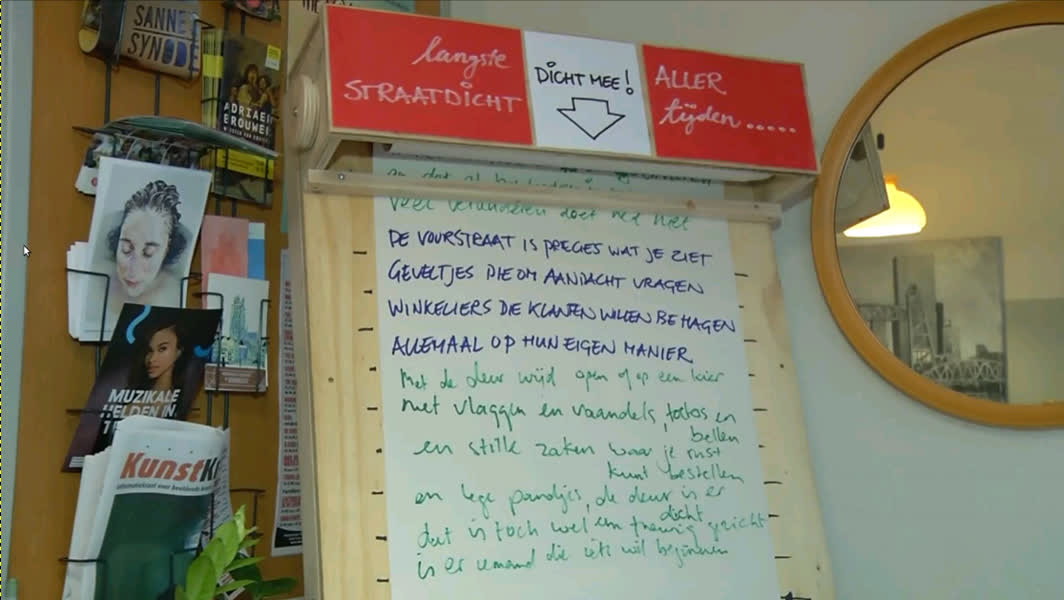 SANNE
SYNODE
ADRIAEN
BROUWER
langste
STRAATDICHT
DICHT MEE!
ALLER
tijden.....
veel veranderen doet het niet
DE VOORSTRAAT IS PRECIES WAT JE ZIET
GEVELTJES DIE OM AANDACHT VRAGEN
WINKELIERS DIE KLANTEN WILLEN BEHAGEN
ALLEMAAL OP HUN EIGEN MANIER
Met de deur wijd open of op een kier
met vlaggen en vaandels, toeters en
bellen
en stille zaken waar je rust
kunt bestellen
en lege pandjes, de deur is er
dicht
dat is toch wel een treurig gezicht
is er iemand die iets wil beginnen
MUZIKALE
HELDEN IN
KunstK